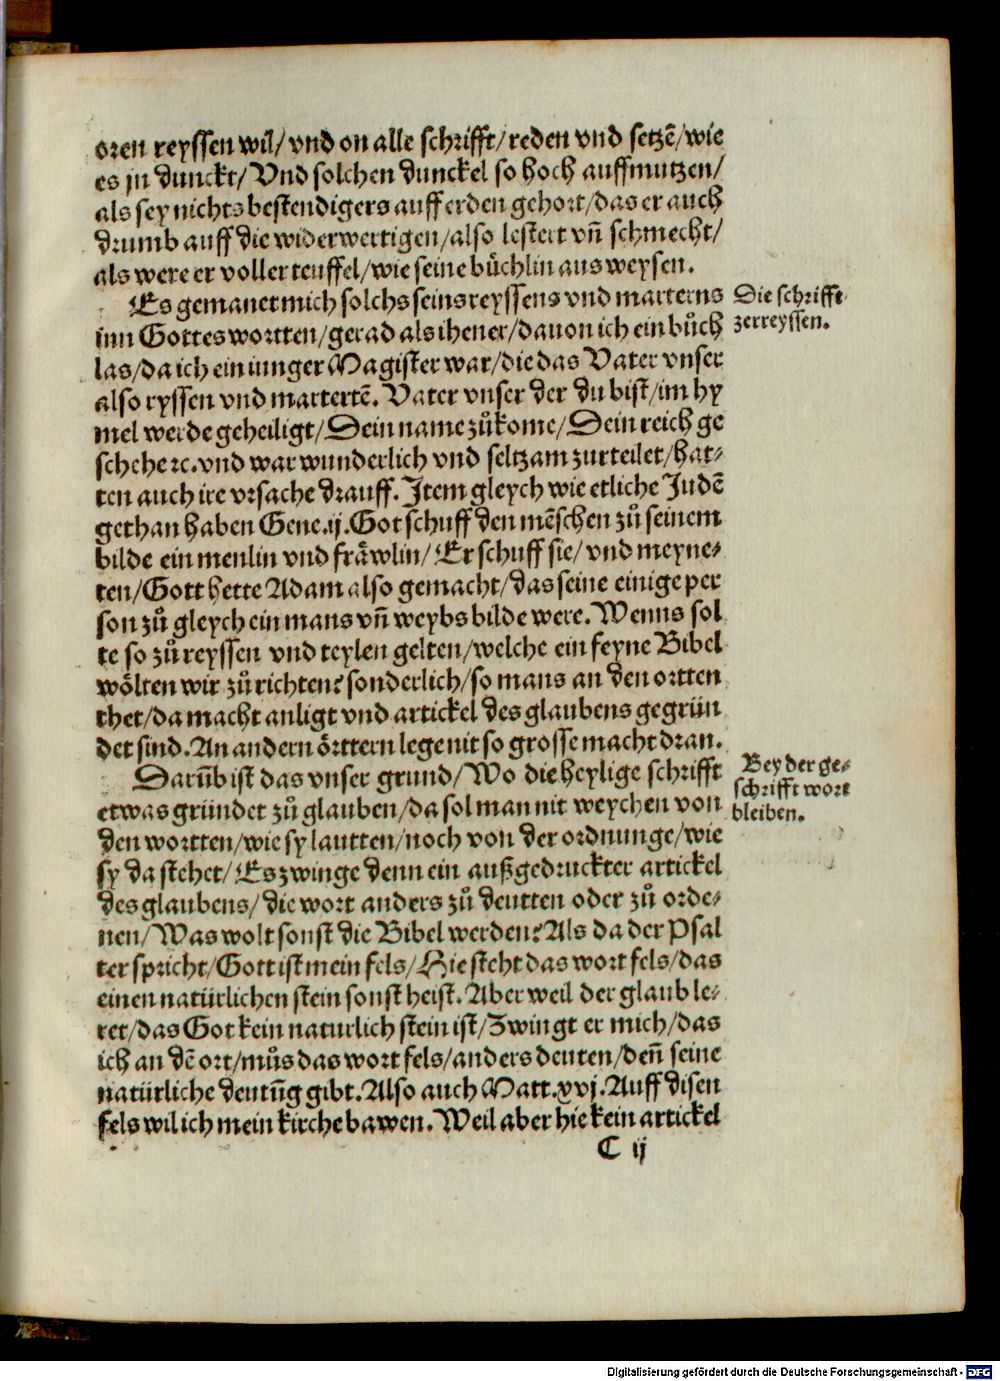 oren reyssen wil/ vnd on alle schrifft/ reden vnd setzē/ wie
es jn dunckt/ Vnd solchen dunckel so hoch auffmutzen/
als sey nichts bestendigers auff erden gehort/ das er auch
drumb auff die widerwertigen/ also lestert vn̄ schmecht/
als were er voller teuffel/ wie seine bůchlin ausweysen.
Es gemanet mich solchs seins reyssens vnd marterns
inn Gottes wortten/ gerad als ihener/ dauon ich ein bůch
las/ da ich ein iunger Magister war/ die das Vater vnser
also ryssen vnd martertē. Vater vnser der du bist/ im hy
mel werde geheiligt/ Dein name zů kome/ Dein reich ge
schehe ꝛc. vnd war wunderlich vnd seltzam zurteilet/ hat⸗
ten auch ire vrsache drauff. Item gleych wie etliche Judē
gethan haben Gene. ij. Got schuff den mēschen zů seinem
bilde ein menlin vnd fråwlin/ Er schuff sie/ vnd meyne⸗
ten/ Gott hette Adam also gemacht/ das seine einige per
son zů gleych ein mans vn̄ weybs bilde were. Wenns sol
te so zů reyssen vnd teylen gelten/ welche ein feyne Bibel
wölten wir zů richten? sonderlich/ so mans an den ortten
thet/ da macht anligt vnd artickel des glaubens gegrün
det sind. An andern örttern lege nit so grosse macht dran.
Darūb ist das vnser grund/ Wo die heylige schrifft
etwas gründet zů glauben/ da sol man nit weychen von
den wortten/ wie sy lautten/ noch von der ordnunge/ wie
sy da stehet/ Es zwinge denn ein außgedruckter artickel
des glaubens/ die wort anders zů deutten oder zů orde⸗
nen/ Was wolt sonst die Bibel werden? Als da der Psal
ter spricht/ Gott ist mein fels/ Hie steht das wort fels/ das
einen natürlichen stein sonst heist. Aber weil der glaub le⸗
ret/ das Got kein naturlich stein ist/ Zwingt er mich/ das
ich an dē ort/ můs das wort fels/ anders deuten/ den̄ seine
natürliche deutūg gibt. Also auch Matt. xvj. Auff disen
fels wil ich mein kirche bawen. Weil aber hie kein artickel
C ij
Die schrifft
zerreyssen.
Bey der ge⸗
schrifft wort
bleiben.
Digitalisierung gefördert durch die Deutsche Forschungsgemeinschaft - DFG